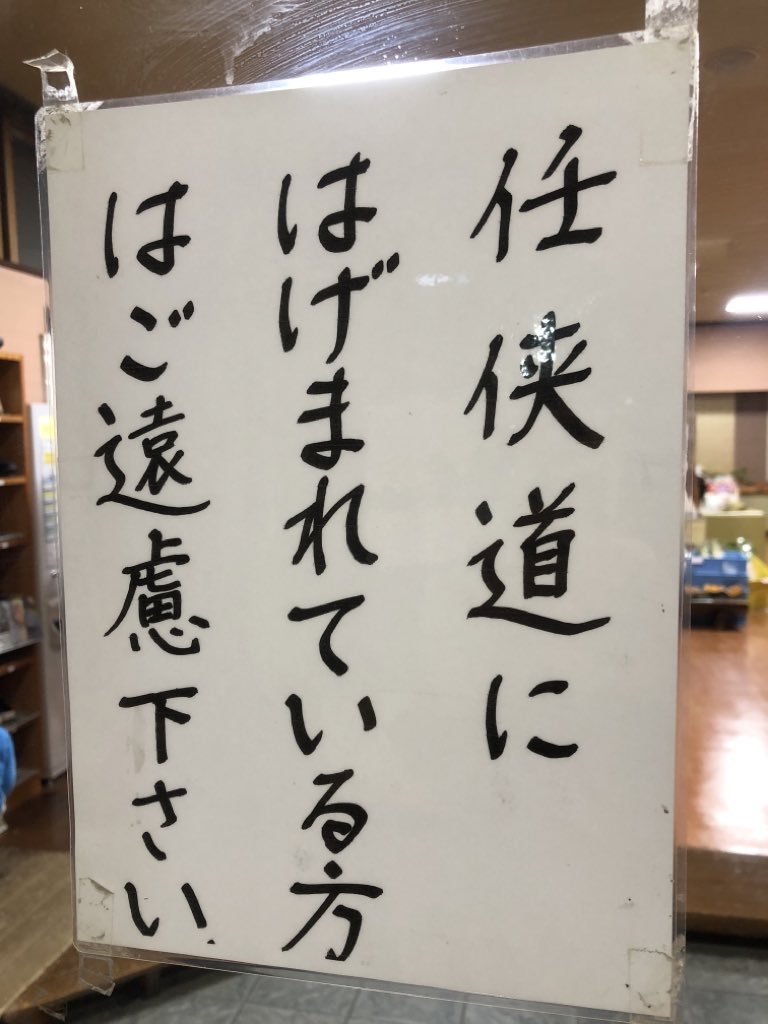 任侠道に
はげまれている方
はご遠慮下さい.